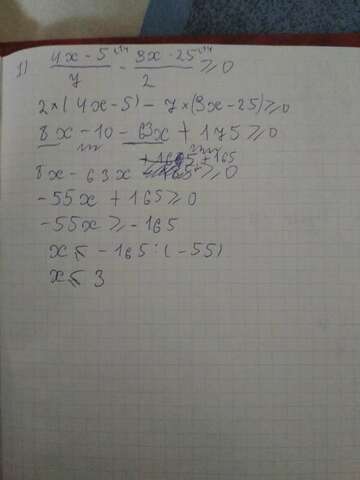 1) (4x-5)/7 - (9x-25)/2 ≥ 0
2×(4x-5) - 7×(9x-25) ≥ 0
8x - 10 - 63x + 175 ≥ 0
8x - 63x +165 ≥ 0
-55x + 165 ≥ 0
-55x ≥ -165
x ≤ -165:(-55)
x ≤ 3